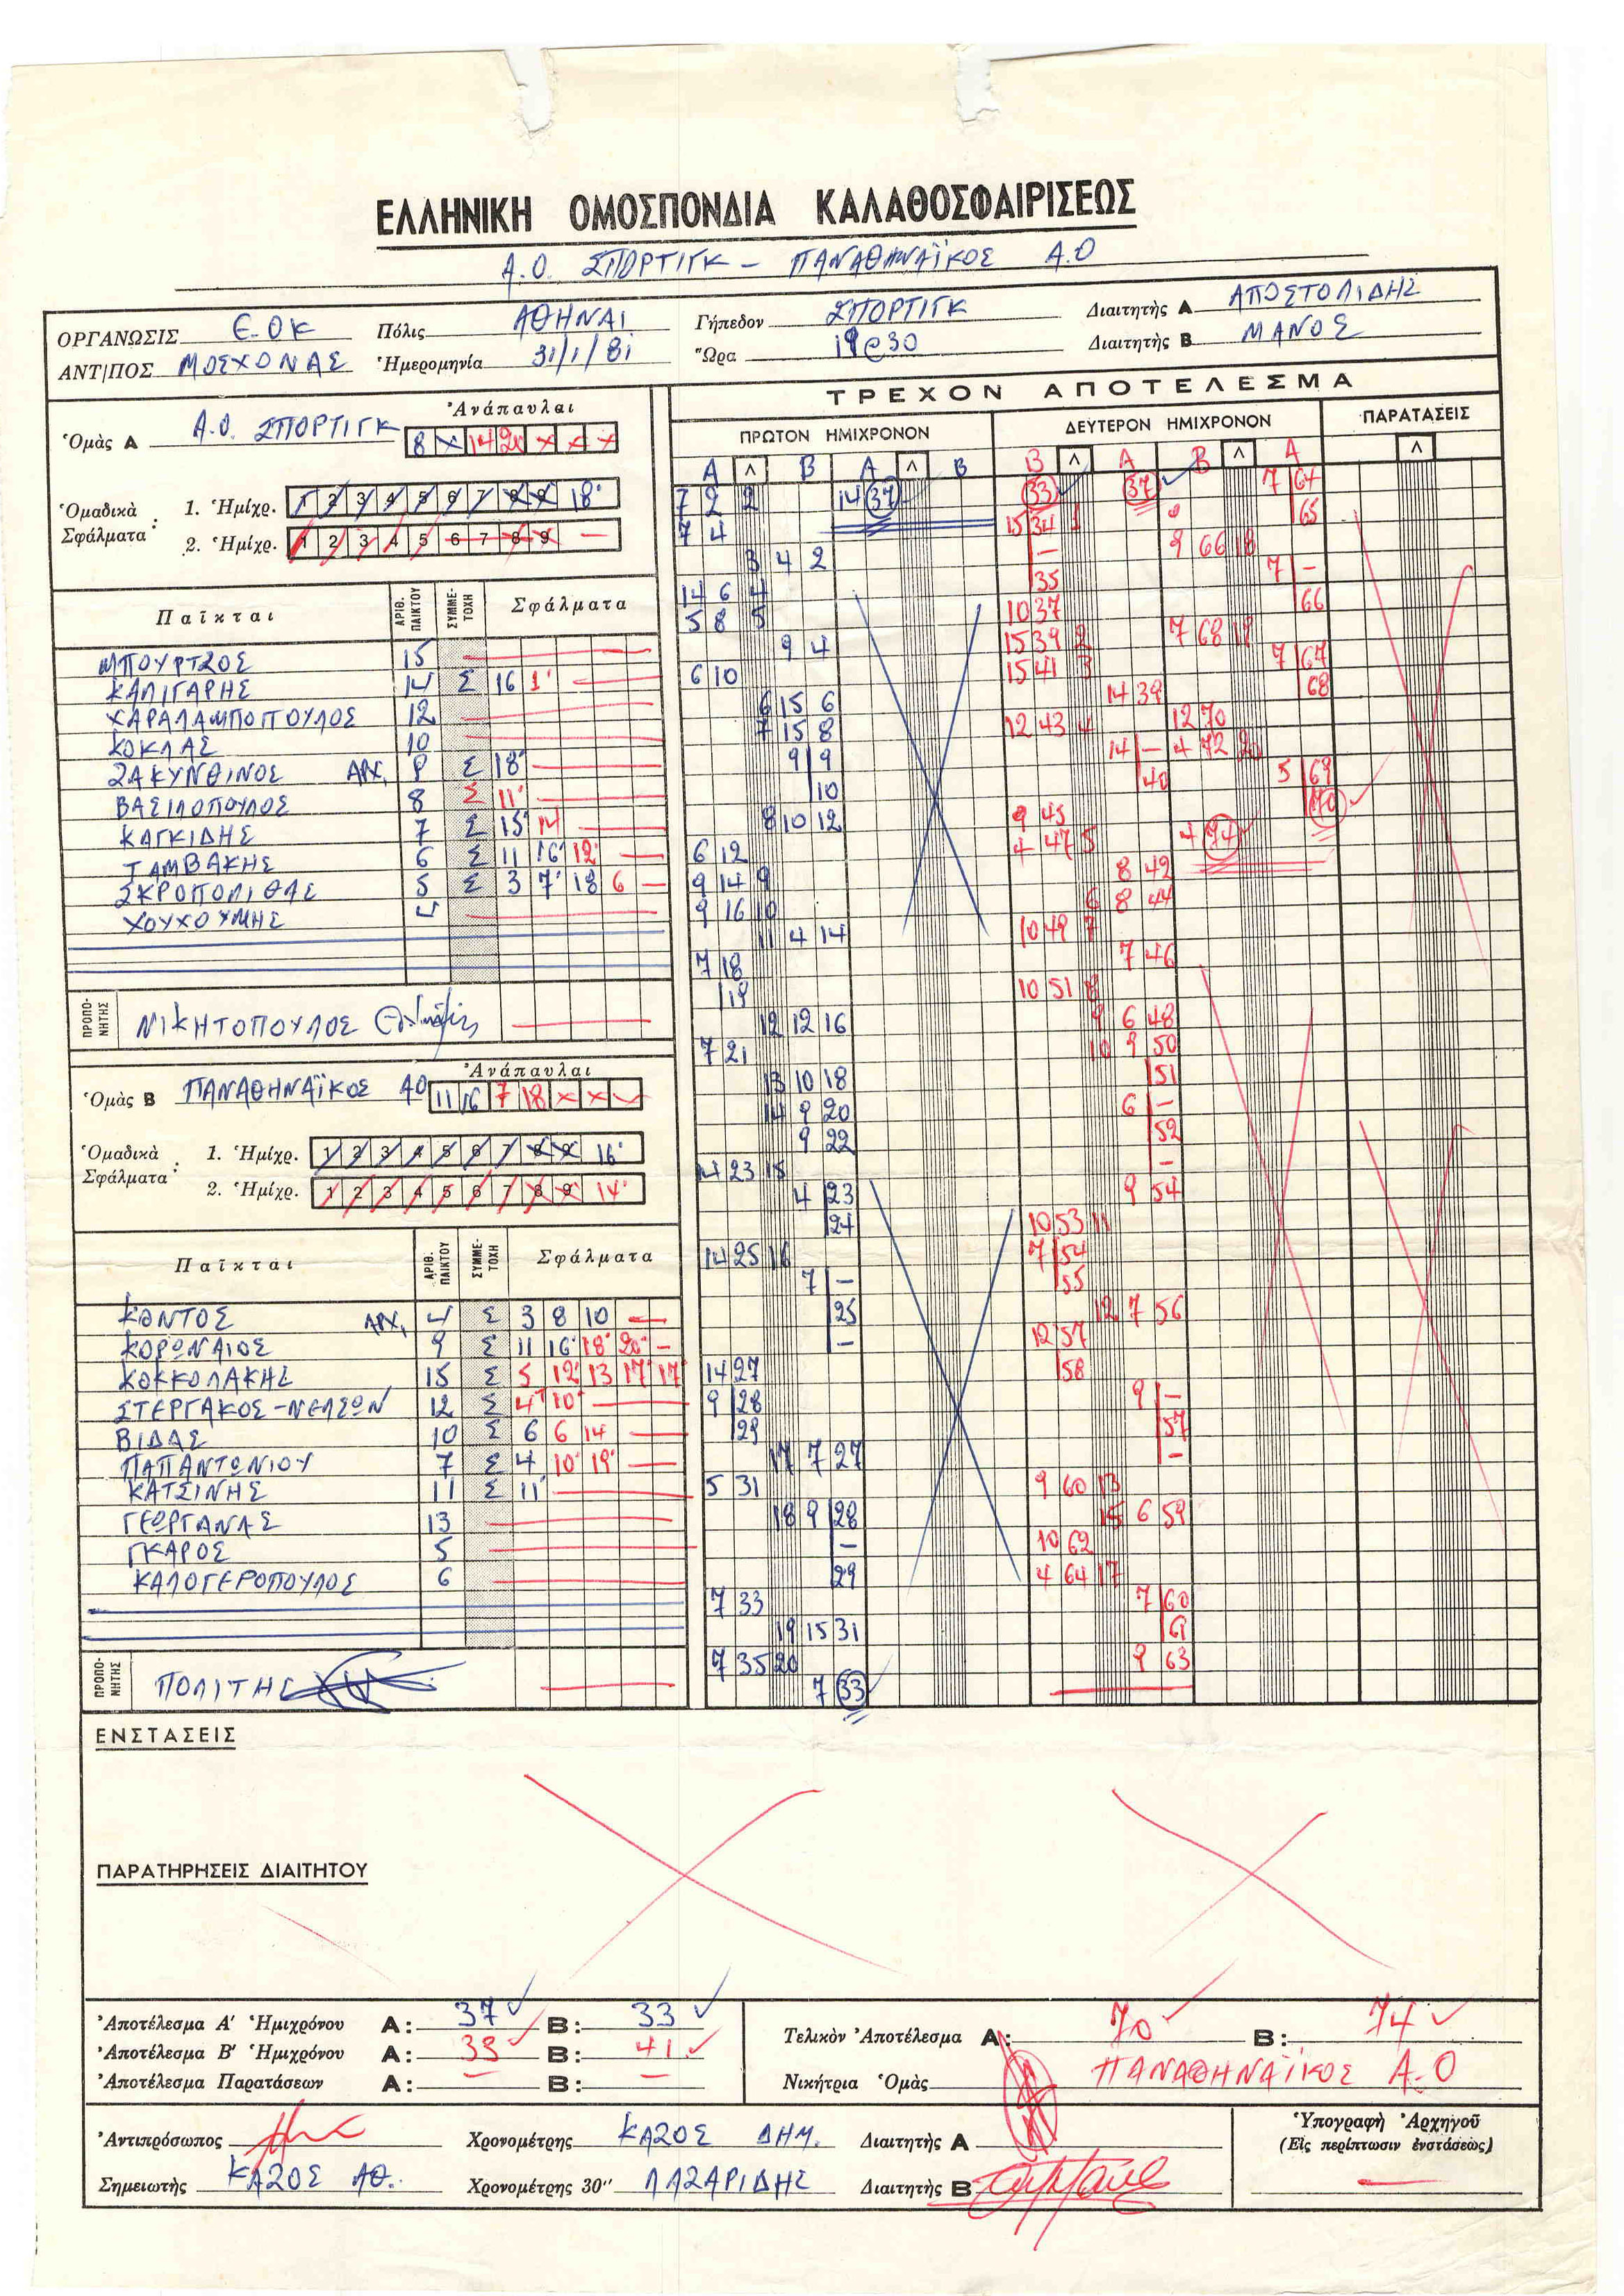 ΕΛΛΗΝΙΚΗ ΟΜΟΣΠΟΝΔΙΑ ΚΑΛΑΘΟΣΦΑΙΡΙΣΕΩΣ
Α.Ο. ΣΠΟΡΤΙΓΚ – ΠΑΝΑΘΗΝΑΪΚΟΣ Α.Ο
ΟΡΓΑΝΩΣΙΣ Ε.ΟΚ Πόλις ΑΘΗΝΑΙ Γήπεδον ΣΠΟΡΤΙΓΚ Διαιτητὴς Α ΑΠΟΣΤΟΛΙΔΗΣ
ΑΝΤ|ΠΟΣ ΜΟΣΧΟΝΑΣ Ἡμερομηνία 31/1/81 Ὥρα 19 30 Διαιτητὴς Β ΜΑΝΟΣ
ΤΡΕΧΟΝ ΑΠΟΤΕΛΕΣΜΑ
ΠΡΩΤΟΝ ΗΜΙΧΡΟΝΟΝ ΔΕΥΤΕΡΟΝ ΗΜΙΧΡΟΝΟΝ ΠΑΡΑΤΑΣΕΙΣ
Α Λ Β Α Λ Β Β Λ Α Β Λ Α Λ
Ἀνάπαυλαι
Ὁμὰς Α Α.Ο. ΣΠΟΡΤΙΓΚ 8 x 14 20 x x x
Ὁμαδικὰ Σφάλματα :
1. Ἡμίχρ. 1 2 3 4 5 6 7 8 9 18'
2. Ἡμίχρ. 1 2 3 4 5 6 7 8 9 –
Παῖκται ΑΡΙΘ. ΠΑΙΚΤΟΥ ΣΥΜΜΕΤΟΧΗ Σφάλματα
ΜΠΟΥΡΤΖΟΣ 15
ΚΑΛΙΓΑΡΗΣ 14 Σ 16 1'
ΧΑΡΑΛΑΜΠΟΠΟΥΛΟΣ 12
ΚΟΚΛΑΣ 10
ΖΑΚΥΝΘΙΝΟΣ ΑΡΧ. 9 Σ 18'
ΒΑΣΙΛΟΠΟΥΛΟΣ 8 Σ 11'
ΚΑΓΚΙΔΗΣ 7 Σ 15' 14
ΤΑΜΒΑΚΗΣ 6 Σ 11 16' 12'
ΣΚΡΟΠΟΛΙΘΑΣ 5 Σ 3 7' 18 6
ΧΟΥΧΟΥΜΗΣ 4
ΠΡΟΠΟΝΗΤΗΣ ΝΙΚΗΤΟΠΟΥΛΟΣ
Ἀνάπαυλαι
Ὁμὰς Β ΠΑΝΑΘΗΝΑΪΚΟΣ ΑΟ 11 16 7 18 x x
Ὁμαδικὰ Σφάλματα :
1. Ἡμίχρ. 1 2 3 4 5 6 7 8 9 16'
2. Ἡμίχρ. 1 2 3 4 5 6 7 8 9 14'
Παῖκται ΑΡΙΘ. ΠΑΙΚΤΟΥ ΣΥΜΜΕΤΟΧΗ Σφάλματα
ΚΟΝΤΟΣ ΑΡΧ. 4 Σ 3 8 10
ΚΟΡΩΝΑΙΟΣ 9 Σ 11 16' 18' 20'
ΚΟΚΚΟΛΑΚΗΣ 15 Σ 5 12' 13 17' 17'
ΣΤΕΡΓΑΚΟΣ-ΝΕΛΣΩΝ 12 Σ 4' 10'
ΒΙΔΑΣ 10 Σ 6 6 14
ΠΑΠΑΝΤΩΝΙΟΥ 7 Σ 4 10' 19'
ΚΑΤΣΙΝΗΣ 11 Σ 11'
ΓΕΩΡΓΑΝΑΣ 13
ΓΚΑΡΟΣ 5
ΚΑΛΟΓΕΡΟΠΟΥΛΟΣ 6
ΠΡΟΠΟΝΗΤΗΣ ΠΟΛΙΤΗΣ
7 2 2 14 37
7 4
3 4 2
14 6 4
5 8 5
9 4
6 10
6 15 6
7 15 8
9 9
10
8 10 12
6 12
9 14 9
9 16 10
11 4 14
7 18
19
12 12 16
7 21
13 10 18
14 9 20
9 22
14 23 15
4 23
24
14 25 16
7 –
25
–
14 27
9 28
29
17 7 27
5 31
18 9 28
–
29
7 33
19 15 31
7 35 20
7 33
33 37
15 34 1
–
35
10 37
15 39 2
15 41 3
14 39
12 43 4
14 –
40
9 45
4 47 5
8 42
6 8 44
10 49 7
7 46
10 51 8
9 6 48
10 9 50
51
6 –
52
–
9 54
10 53 11
7 54
55
12 7 56
12 57
58
9 –
57
–
9 60 13
15 6 59
10 62
4 64 17
7 60
61
9 63
7 64
65
9 66 18
7 –
66
7 68 19
7 67
68
12 70
4 72 20
5 69
70
4 74
ΕΝΣΤΑΣΕΙΣ
ΠΑΡΑΤΗΡΗΣΕΙΣ ΔΙΑΙΤΗΤΟΥ
Ἀποτέλεσμα Α' Ἡμιχρόνου Α: 37 Β: 33
Ἀποτέλεσμα Β' Ἡμιχρόνου Α: 33 Β: 41
Ἀποτέλεσμα Παρατάσεων Α: – Β: –
Τελικὸν Ἀποτέλεσμα Α: 70 Β: 74
Νικήτρια Ὁμὰς ΠΑΝΑΘΗΝΑΪΚΟΣ Α.Ο
Ἀντιπρόσωπος Χρονομέτρης ΚΑΖΟΣ ΔΗΜ. Διαιτητὴς Α
Σημειωτὴς ΚΑΖΟΣ ΑΘ. Χρονομέτρης 30'' ΛΑΖΑΡΙΔΗΣ Διαιτητὴς Β
Ὑπογραφὴ Ἀρχηγοῦ
(Εἰς περίπτωσιν ἐνστάσεως)